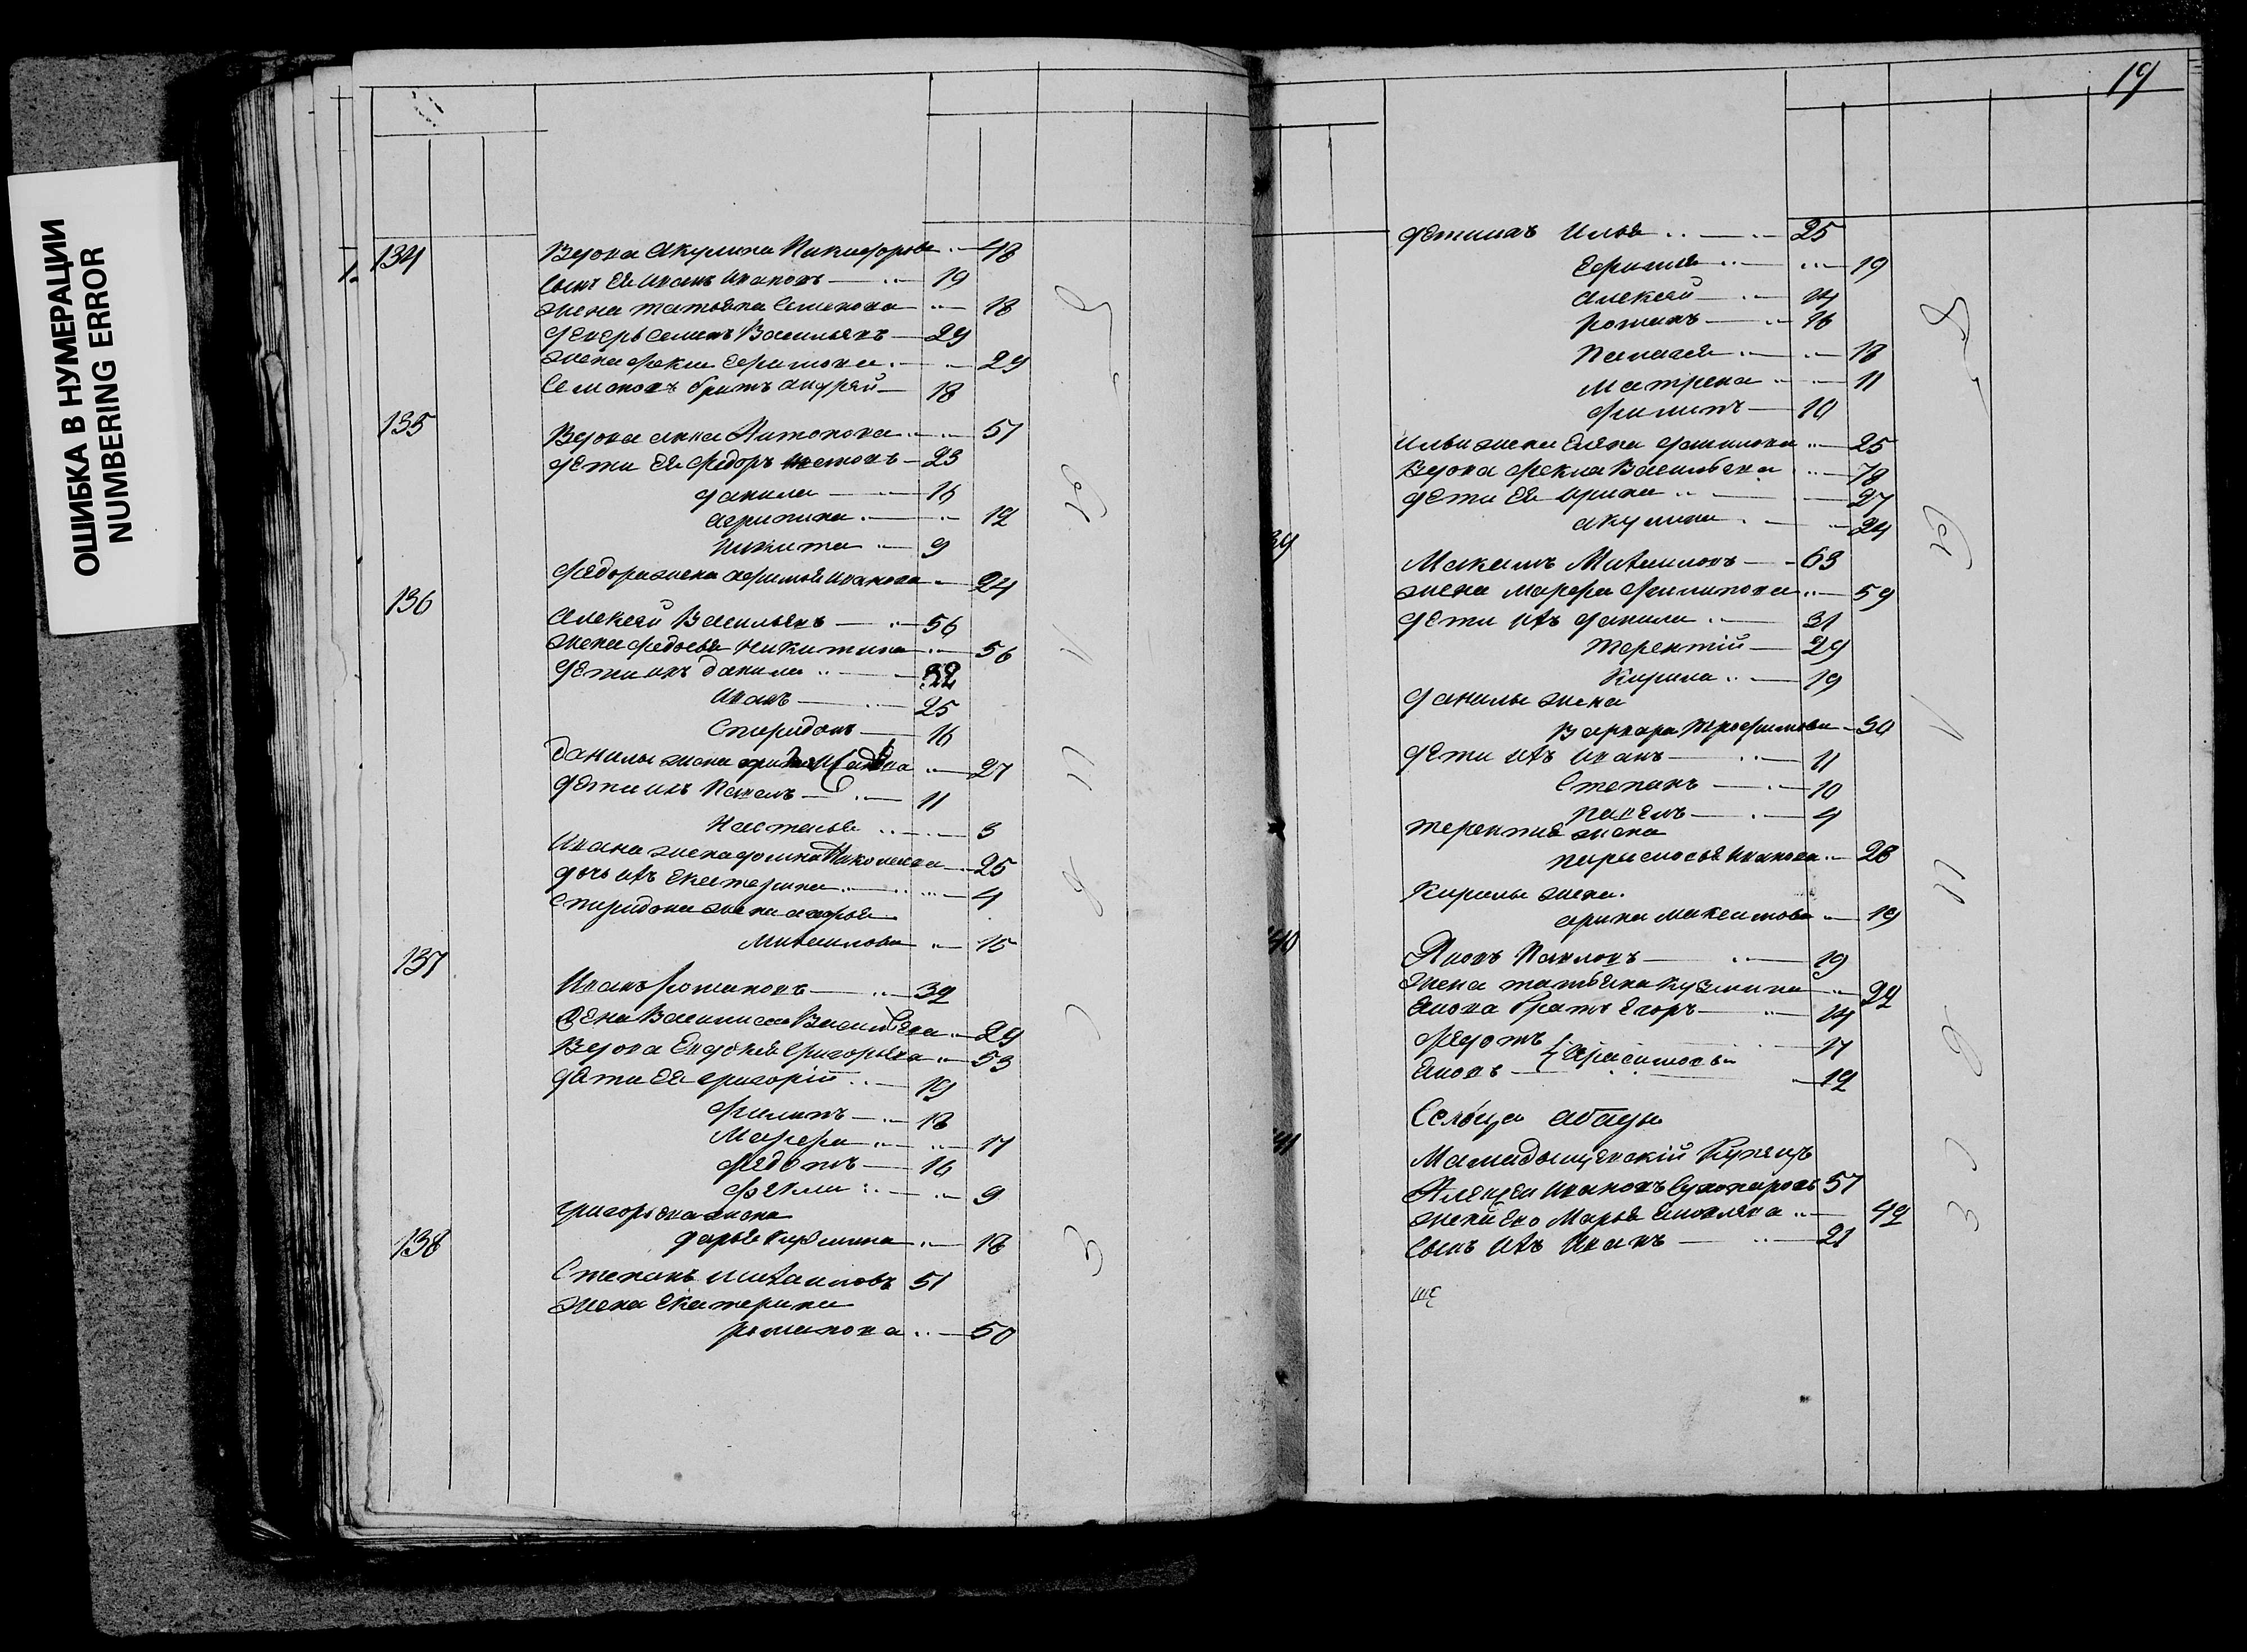 ОШИБКА В НУМЕРАЦИИ
NUMBERING ERROR
134 Вдова Акулина Никифорова 48
сынъ Ея Иванъ Ивановъ 19
жена татьяна Семенова 18
Деверь Семенъ Васильевъ 29
жена Фекла Ефимова 29
Семеновъ братъ андрей 18
135 Вдова анна Антонова 51
дети Ея Федоръ 23
данила 16
агрипина 12
Никита 9
Федора жена афимья Иванова 24
136 Алексей Васильевъ 56
жена Федосья Никитина 56
дети ихъ данила 32
Иванъ 25
Спиридонъ 16
данилы жена 27
дети ихъ Павелъ 11
Настасья 3
Ивана жена домна Николаева 25
дочь ихъ Екатерина 4
Спиридона жена
Михаилова 15
137 Иванъ романовъ 39
жена Василиса Васильева 29
Вдова Евдокия Григорьева 53
дети Ея григорій 19
филипъ 18
Марфа 17
федотъ 16
фекла 9
григорьева жена
дарья Кузмина 18
138 Степанъ михаиловъ 51
жена Екатерина
романова 50
19
дети ихъ Илья 25
Ефимья 19
алексей 14
романъ 16
Палагея 18
Матрена 11
филипъ 10
Ильи жена Елена филипова 25
Вдова фекла Васильева 78
дети Ея Арина 27
акулина 24
39 Максимъ Михаиловъ 63
жена марфа филипова 59
дети ихъ данила 31
терентій 29
Кирила 19
данилы жена
Варвара трофимова 30
дети ихъ Иванъ 11
Степанъ 10
павелъ 4
терентия жена
парасковья Иванова 28
Кирилы жена
арина максимова 19
40 Яковъ Павловъ 19
жена татьяна Кузмина 22
Якова братъ Егоръ 14
федотъ 17
Яковъ Герасимовы 12
Сельца абады
41 Мамадышевский Купецъ
Алексей Ивановъ 57
жена Ево Марья Яковлева 42
сынъ ихъ Иванъ 21